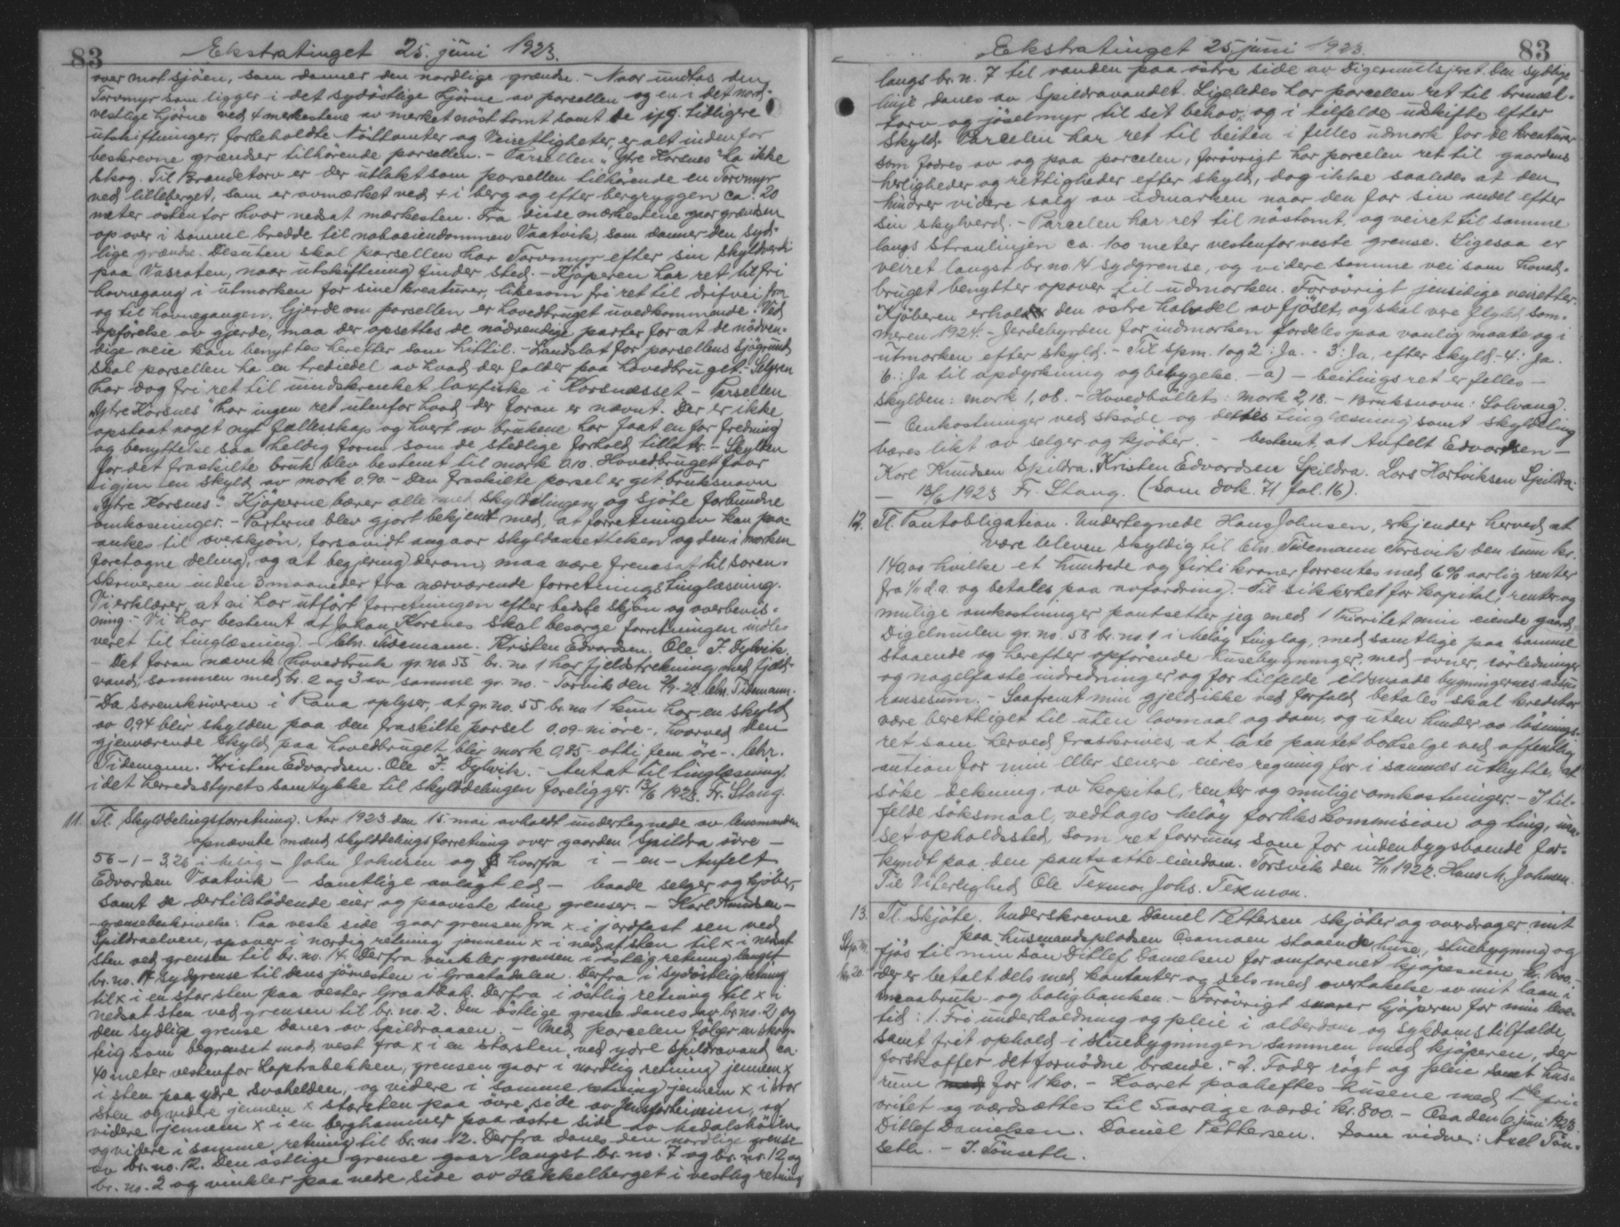 83 Ekstratinget 25. juni 1923.
over mot sjöen, som danner den nordlige grændse. - Naar undtas den
Torvmyr som ligger i det sydöstlige hjörne av parsellen og en i det nord-
vestlige hjörne ved 4 merkestene av merket nöst tomt samt de ifg. tidligere
utskiftninger, forbeholdte Nöttomter og Veirettigheter, er alt indenfor
beskrevne grændser tilhörende parsellen. - Parsellen "Ytre Korsnes" ha ikke
skog. Til Brendetorv er der utlekt som parsellen tilhörende en Torvmyr
ved lilleberget, som er avmærket ved + i berg og efter bergryggen ca. 20
meter ostenfor hvor nedsat mærkesten. Fra disse mærkestene gaar grændsen
op over i samme bredde til naboeiendommen Vaatvik, som danner den syd-
lige grændse. Desuten skal parsellen har Torvmyr efter sin skyldverdi
paa Vasraten, naar utskiftning finder sted. - Kjöperen har ret til fri
havnegang i utmarken for sine kreaturer, likesom fri ret til drifvei fra
og til havnegangen. Gjerde om parsellen er hovedbruget uvedkommende. Ved
opförelse av gjerde, maa der opsettes de nödvendige porter for at de nödven-
dige veie kan benyttes herefter som hittil. - Landslot for parsellens sjögrund
skal parsellen ha en trediedel av hvad der falder paa hovedbruget. - Selgeren
har dog fri ret til uindskrenket laxfiske i Korsnæsset - Parsellen
Ytre Korsnes har ingen ret utenfor hvad der foran er nævnt. Der er ikke
opstaat noget nyt fællesskap og hvert av brukene har faat en for fredning
og benyttelse saa heldig form som de stedlige forhold tillater. - Skylden
for det fraskilte bruk blev bestemt til mark 0.10. Hovedbruget faar
igjen en skyld av mark 0.90. - Den fraskilte parsel er get bruksnavn
"Ytre Korsnes". Kjöperne bærer alle med skylddelingen og sjöte forbundne
omkosninger. - Parterne blev gjort bekjendt med, at forretningen kan paa-
ankes til overskjön, forsavidt angaar skyldansettelsen og den i marken
foretagne deling, og at begjæring derom, maa være fremsat til soren-
skriveren inden 3 maaneder fra nærværende forretnings tinglæsning.
Vi erklærer, at vi har utfört forretningen efter bedste skjön og overbevis-
ning. - Vi har bestemt at Johan Korsnes skal besörge forretningen indle-
veret til tinglæsning. Chr. Tidemann. Kristen Edvardsen. Ole J. Dylvik.
- Det foran nævnte hovedbruk gr. no. 55 br. no 1 har fjeldstrekning med fjeld-
vand, sammen med br. 2 og 3 av samme gr. no. - Torvik den 2/4-22 Chr. Tidemann.
- Da sorenskriveren i Rana oplyser, at gr. no. 55 br. no 1 kun har en skyld
av 0,94 blir skylden paa den fraskilte parsel 0.09 - ni öre -, hvorved den
gjenværende skyld paa hovedbruget blir mark 0,85 - otti fem öre -. Chr.
Tidemann. Kristen Edvardsen. Ole J. Dylvik. - Antat til tinglæsning
idet herredsstyrets samtykke til skylddelingen foreligger. 13/6 1923. Fr. Stang.
11. Tl. Skylddelingsforretning. Aar 1923 den 15. mai avholdt undertegnede av lensmanden
opnævnte mænd skylddelingsforretning over gaarden Spildra övre -
56 - 1 - 3,26 i Melöy - John Johnsen og hvorfra i - en - Anfelt
Edvardsen Vaatvik - samtlige avlagt ed - baade selger og kjöber,
samt de dertilstödende eier og paaviste sine grenser. - Karl Knudsen -
grensebeskrivelse: Paa veste side gaar grensen fra x i jordfast sten ved
Spildraelven, opover i nordlig retning jennem x i nedsat sten til x i nedsat
sten ved grensen til br. no. 14. Derfra vinkler grensen i östlig retning langst
br. no. 14 sydgrense til dens jörnesten i Graatadalen. Derfra i sydöstlig retning
til x i en stor sten paa vester Graatkak. Derfra i östlig retning til x i
nedsat sten ved grensen til br. no. 2. Den östlige grense danes av br. no. 2 og
den sydlige grense danes av Spildraaaen. - Med parcelen fölger en skog-
teig som begrenset mod vest fra x i en storsten, ved ydre Spildravand ca.
40 meter vestenfor Kaptrabekken, grensen gaar i nordlig retning jennem x
i sten paa ydre Svahelden, og videre i samme retning jennem x i stor
sten og videre jennem x storsten paa övre side av, og
videre jennem x i en berghammer paa östre side av
og videre i samme retning til br. no 12. Derfra danes den nordlige grense
av br. no. 12. Den östlige grense gaar langst br. no. 7 og br. nr. 12 og
br. no. 2 og vinkler paa nedre side av Hekkelberget i vestlig retning
Ekstratinget 25 juni 1923. 83
langs br. n. 7 til vanden paa östre side av Digermulsjeret. Den sydlige
linje danes av Spildravandet. Ligeledes har parcelen ret til brensel-
torv og jöselmyr til sit behov, og i tilfelde udskifte efter
skyld. Parcelen har ret til beiten i felles udmark for de kreaturer
som fodres av og paa parcelen, forövrigt har parcelen ret til gaardens
herligheder og rettigheder efter skyld, dog ikke saaledes at den
hindrer videre salg av udmarken naar den far sin andel efter
sin skylverd. - Parcelen har ret til nöstomt, og veiret til samme
langs stranlinjen ca. 100 meter vestenfor veste grense. Ligesaa er
veiret langst br. no 14 sydgrense, og videre samme vei som hoved-
bruget benytter opover til udmarken. Forövrigt jensidige veiretter.
Kjöberen erholder den östre halvdel av fjöset, og skal vere flyttet som-
meren 1924. - Jerdebyrden for indmarken fordeles paa vanlig maate og i
utmarken efter skyld. - Til spm. 1 og 2: Ja. - 3: Ja, efter skyld. - 4: Ja.
6: Ja til opdyrkning og bebygelse. - a) - beitings ret er felles -
skylden: mark 1,08. - Hovedböllets: mark 2,18. - Bruksnavn: Solvang).
- Omkostninger ved sköde og dettes tinglæsning samt skyldeling
bæres likt av selger og kjöber. - bestemt at Anfelt Edvardsen -
Karl Knudsen Spildra. Kristen Edvardsen Spildra. Lars Hartviksen Spildra.
- 13/6 1923 Fr. Stang. (Som dok. 71 fol. 16).
12. Tl. Pantobligation. Undertegnede Hans Johnsen, erkjender herved at
være bleven skyldig til Chr. Tidemann Torsvik den sum kr.
140,00 hvilke et hundrede og firti kroner forrentes med 6 % aarlig renter
fra 1/1 d.a. og betales paa anfordring. - Til sikkerhet for kapital, renter og
mulige omkostninger pantsetter jeg med 1 Prioritet min eiende gaard
Digelmulen gr. no. 58 br. no. 1 i Melöy tinglag, med samtlige paa samme
staaende og herefter opförende husebygninger, med ovner, rörledninger
og nagelfaste indredninger og for tilfelde ildsvaade bygningernes assu-
ransesum. - Saafremt min gjeld ikke ved forfald betales skal kreditor
være berettiget til uten lovmaal og dom, og uten hinder av lösnings-
ret som herved fraskrives, at late pantet bortselge ved offentlig
auktion for min eller senere eieres regning for i sammes utbytte, at
söke dekning, av kapital, renter og mulige omkostninger. - I til-
felde söksmaal, vedtages Melöy forliks kommision og ting, uan-
set opholdssted, som ret forrum, som for indenbygsboende for-
kyndt paa den pantsatte eiendom. Torsvik den 2/11 1922. Hans M. Johnsen.
Til Viterlighed Ole Texmon Johs. Texmon.
13. Tl. Skjöte. Underskrevne Daniel Pettersen skjöter og overdrager mit
paa husmandspladsen Osamoen staaende huse, stuebygning og
Stp. m. fjös til min sön Ditlef Danielsen for omforenet kjöpesum kr. 800.
kr. 20. der er betalt dels med kontanter og dels med overtakelse av mit laan i
Smaabruk- og boligbanken. - Forövrigt svarer kjöperen for min leve-
tid: 1. Fri underholdning og pleie i alderdom og sykdoms tilfælde,
samt frit ophold i stuebygningen sammen med kjöperen, der
forskaffer det fornödne brænde. - 2. Foder rögt og pleie samt hus-
rum for 1 ko. - Kaaret paaheftes husene med 1ste pri-
oritet og værdsættes til 5 aarlige værdi kr. 800. - Osa den 6 juni 1923.
Ditlef Danielsen. Daniel Pettersen. Som vidner: Axel Tön-
seth. - J. Tönseth.